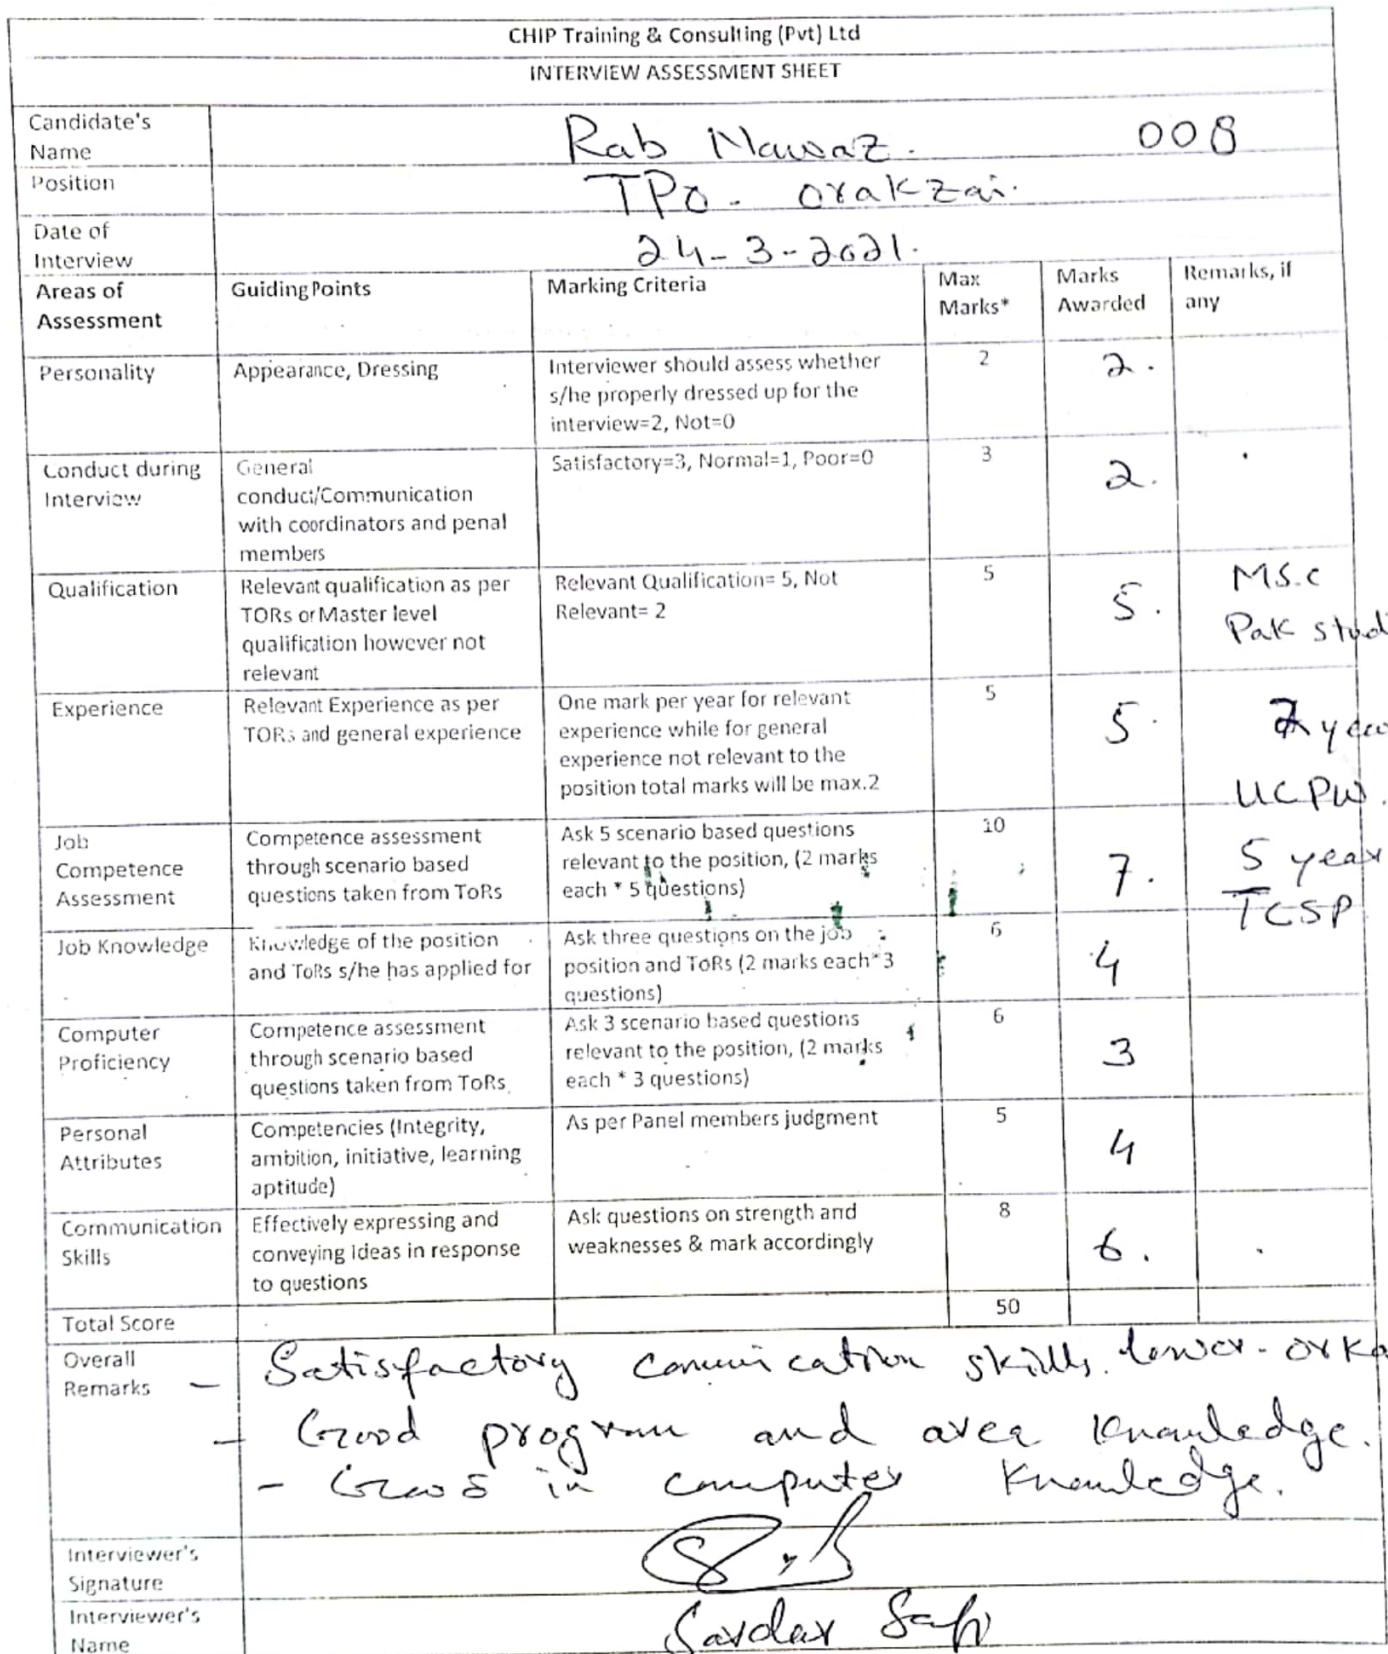 CHIP Training & Consulting (Pvt) Ltd
INTERVIEW ASSESSMENT SHEET
Candidate's
Name
Rab Nawaz. 008
Position
TPO. orakzai.
Date of
Interview
24-3-2021.
Areas of
Assessment
Guiding Points
Marking Criteria
Max
Marks*
Marks
Awarded
Remarks, if
any
Personality
Appearance, Dressing
Interviewer should assess whether
s/he properly dressed up for the
interview=2, Not=0
2
2.
Conduct during
Interview
General
conduct/Communication
with coordinators and penal
members
Satisfactory=3, Normal=1, Poor=0
3
2.
Qualification
Relevant qualification as per
TORs or Master level
qualification however not
relevant
Relevant Qualification= 5, Not
Relevant= 2
5
5.
M.S.c
Pak stud
Experience
Relevant Experience as per
TORs and general experience
One mark per year for relevant
experience while for general
experience not relevant to the
position total marks will be max.2
5
5.
UCPW.
Job
Competence
Assessment
Competence assessment
through scenario based
questions taken from ToRs
Ask 5 scenario based questions
relevant to the position, (2 marks
each * 5 questions)
10
7.
5 year
TCSP
Job Knowledge
Knowledge of the position
and ToRs s/he has applied for
Ask three questions on the job
position and ToRs (2 marks each*3
questions)
6
4
Computer
Proficiency
Competence assessment
through scenario based
questions taken from ToRs
Ask 3 scenario based questions
relevant to the position, (2 marks
each * 3 questions)
6
3
Personal
Attributes
Competencies (Integrity,
ambition, initiative, learning
aptitude)
As per Panel members judgment
5
4
Communication
Skills
Effectively expressing and
conveying ideas in response
to questions
Ask questions on strength and
weaknesses & mark accordingly
8
6.
Total Score
50
Overall
Remarks
- Satisfactory communication skills. lower-orka
- Good program and area knowledge.
- in computer knowledge.
Interviewer's
Signature
Interviewer's
Name
Sardar Safi